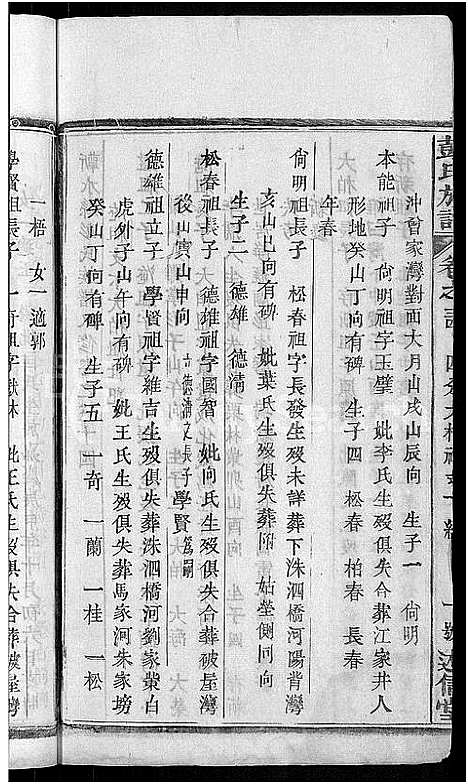 彭氏族譜
卷之
述信堂
沖曾家灣對面大月山戌山辰向 生子一 尙明
本能祖子 尙明祖字玉璧 妣李氏生歿俱失葬江家井人
形地癸山丁向有碑 生子四 松春 柏春 長春
年春
尙明祖長子 松春祖字長發生歿未詳葬下洙泗橋河陽背灣
亥山巳向有碑 妣葉氏生歿俱失葬附 姑塋側同向
生子二 德雄 德淸
松春祖長子 德雄祖字國智 妣向氏生歿俱失合葬破屋灣
後山寅山申向 立德淸之長子學賢爲嗣
德雄祖立子 學賢祖字維吉生歿俱失葬洙泗橋河劉家塝白
虎外子山午向有碑 妣王氏生歿俱失葬馬家河朱家塝
癸山丁向有碑 生子五 一奇 一蘭 一桂 一松
一梧 女一 適郭
學賢祖長子 一奇祖字獻林 妣王氏生歿俱失合葬破屋灣